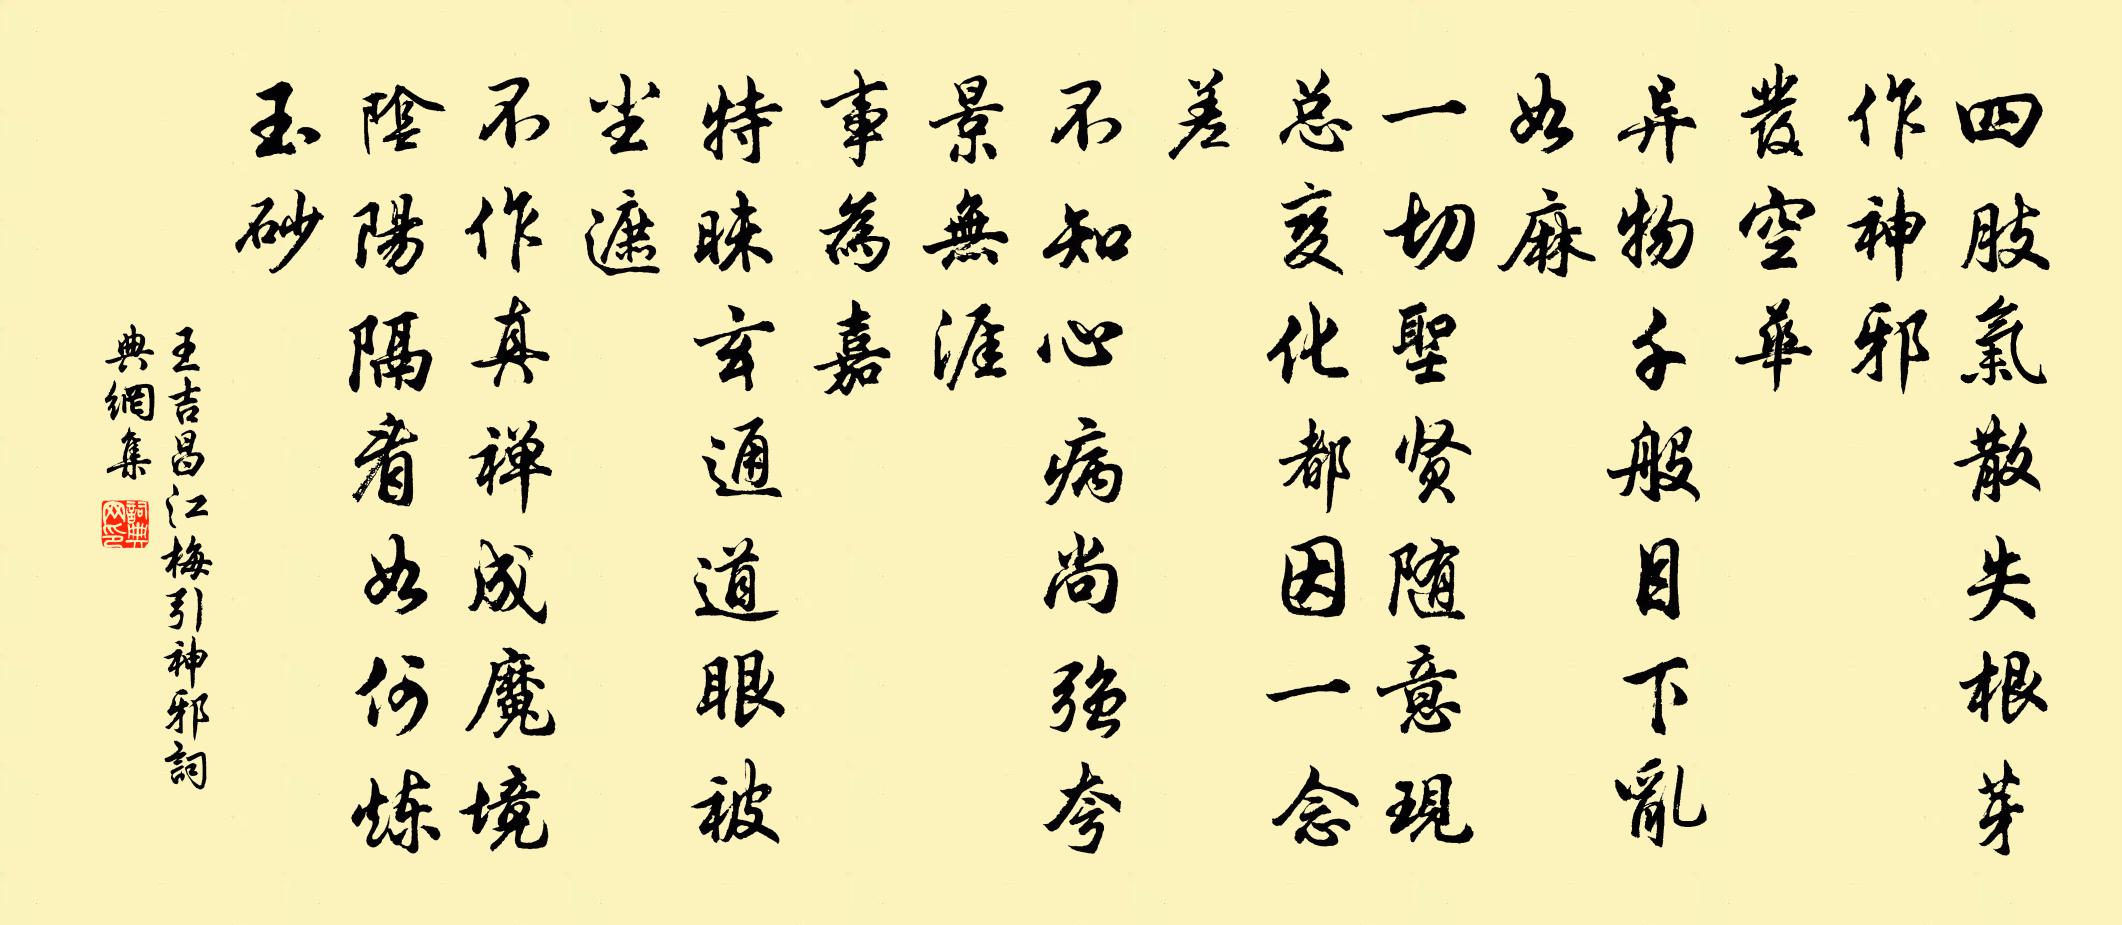 四肢氣散失根芽
作神邪
發空華
异物千般目下亂
如麻
一切聖贤随意現
总变化都因一念
差
不知心病尚强夸
景無涯
事為嘉
特昧玄通道眼被
尘遮
不作真禅成魔境
陰陽隔看如何炼
玉砂
王吉昌江梅引神邪詞
典網集
詞典网印